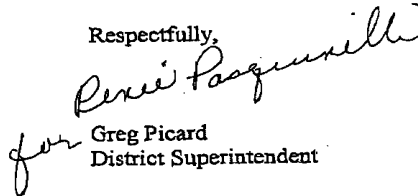 Respectfully,
Reneé Pasquinelli
for Greg Picard
District Superintendent